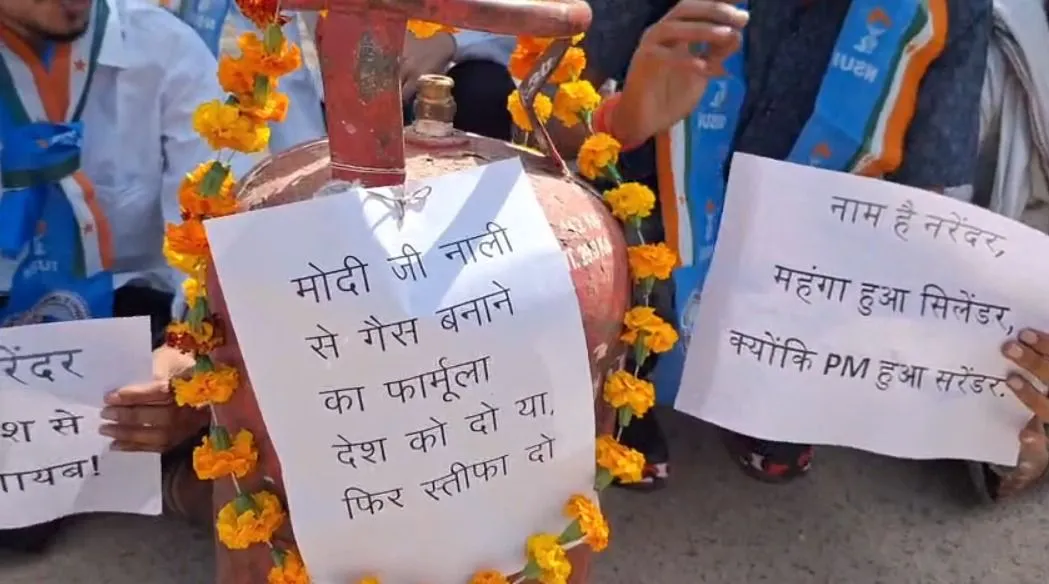 मोदी जी नाली
से गैस बनाने
का फार्मूला
देश को दो या,
फिर स्तीफा दो
नाम है नरेंदर,
महंगा हुआ सिलेंडर,
क्योंकि PM हुआ सरेंडर.
रेंदर
श से
गायब!
NSUI
NSUI